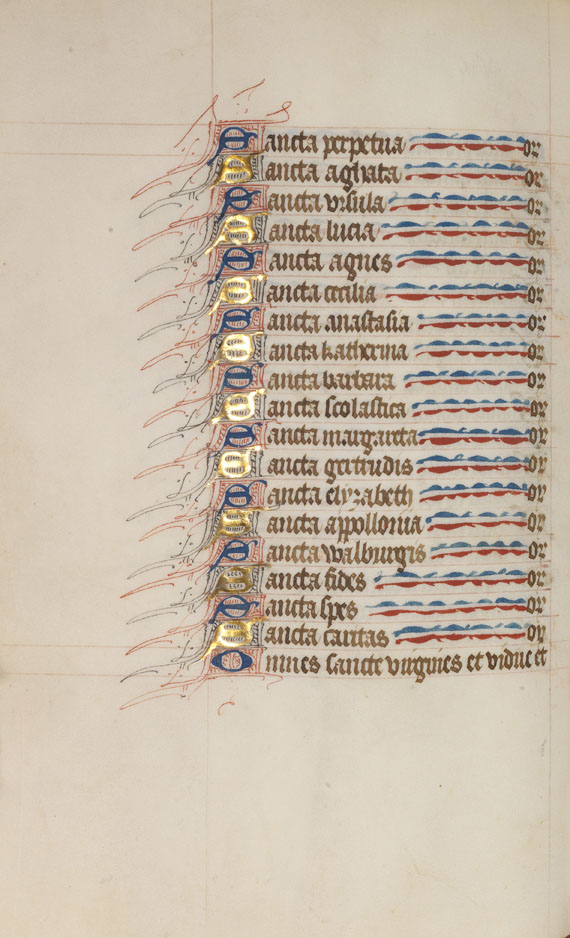 Sancta perpetua or
Sancta aghata or
Sancta vrsula or
Sancta lucia or
Sancta agnes or
Sancta cecilia or
Sancta anastasia or
Sancta katherina or
Sancta barbara or
Sancta scolastica or
Sancta margareta or
Sancta gertrudis or
Sancta elyzabeth or
Sancta appollonia or
Sancta walburgis or
Sancta fides or
Sancta spes or
Sancta caritas or
Omnes sancte virgines et vidue et